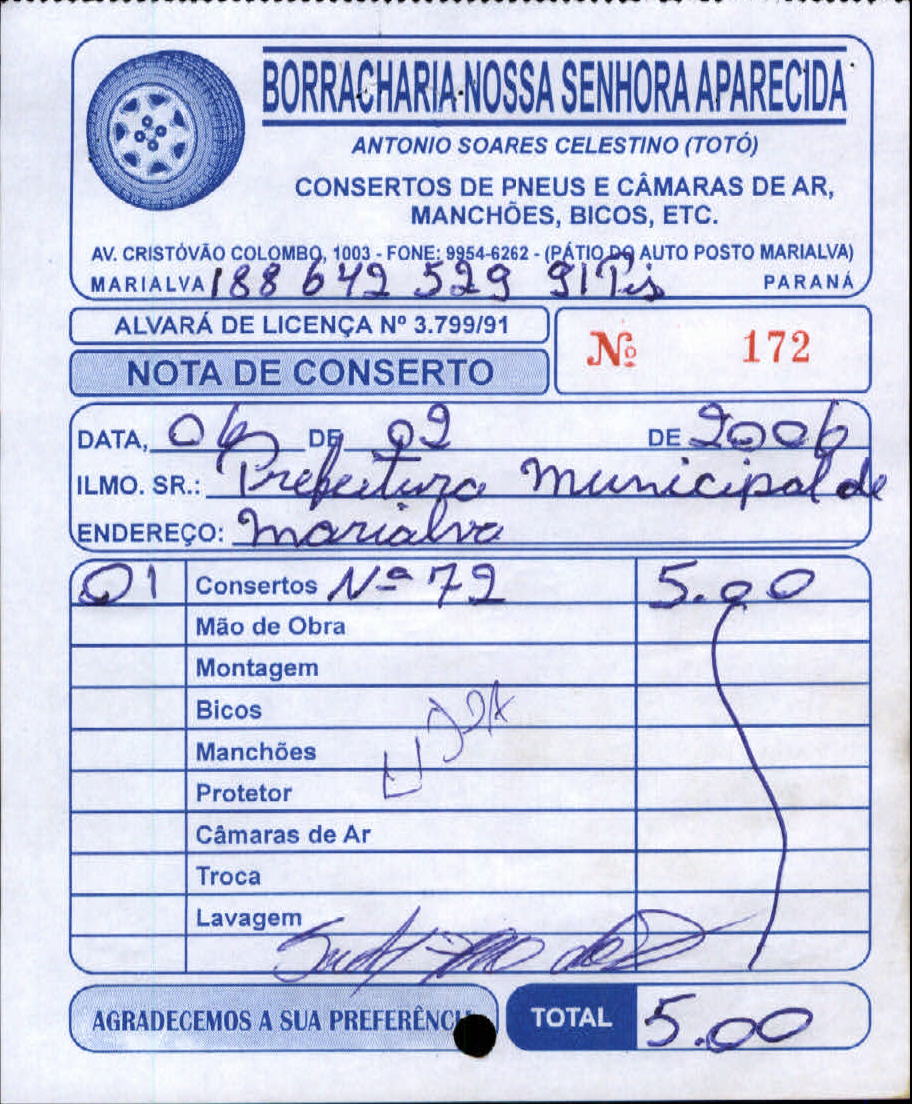 BORRACHARIA NOSSA SENHORA APARECIDA
ANTONIO SOARES CELESTINO (TOTÓ)
CONSERTOS DE PNEUS E CÂMARAS DE AR,
MANCHÕES, BICOS, ETC.
AV. CRISTÓVÃO COLOMBO, 1003 - FONE: 9954-6262 - (PÁTIO DO AUTO POSTO MARIALVA)
MARIALVA 188 642 529 91 Pis PARANÁ
ALVARÁ DE LICENÇA Nº 3.799/91
NOTA DE CONSERTO
Nº 172
DATA, 06 DE 02 DE 2006
ILMO. SR.: Prefeitura Municipal de
ENDEREÇO: Marialva
01 Consertos Nº 72 5.00
Mão de Obra
Montagem
Bicos
Manchões
Protetor
Câmaras de Ar
Troca
Lavagem
AGRADECEMOS A SUA PREFERÊNCIA
TOTAL 5.00